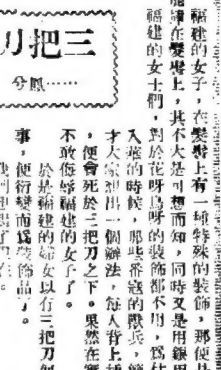 福建的女子，在鬓髻上有一種特殊的裝飾，那便是
髻上，其不大是可想而知，同時又是用銀
福建的女士們，對於花呀鳥呀的裝飾都不用，爲
的時候，那些番寇的獸兵，
才大家想出一個辦法，每人背上插
，便會死於三把刀之下。果然在
不敢侮辱福建的女子了。
於是福建的婦女以有三把刀
事，便衍變而爲裝飾品了。
三把刀
……原兮